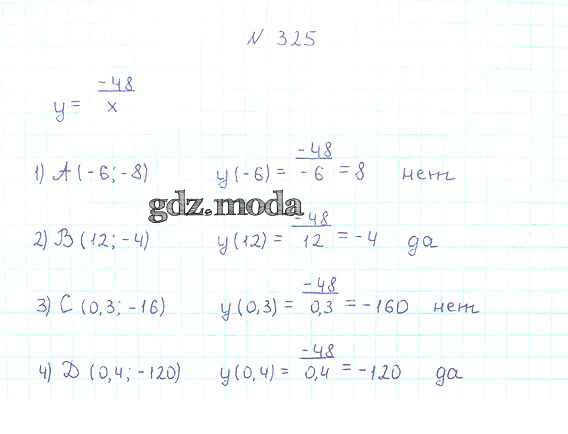 N 325
y = -48/x
1) A (-6; -8) y(-6) = -48/-6 = 8 нет
gdz.moda
2) B (12; -4) y(12) = -48/12 = -4 да
3) C (0,3; -16) y(0,3) = -48/0,3 = -160 нет
4) D (0,4; -120) y(0,4) = -48/0,4 = -120 да